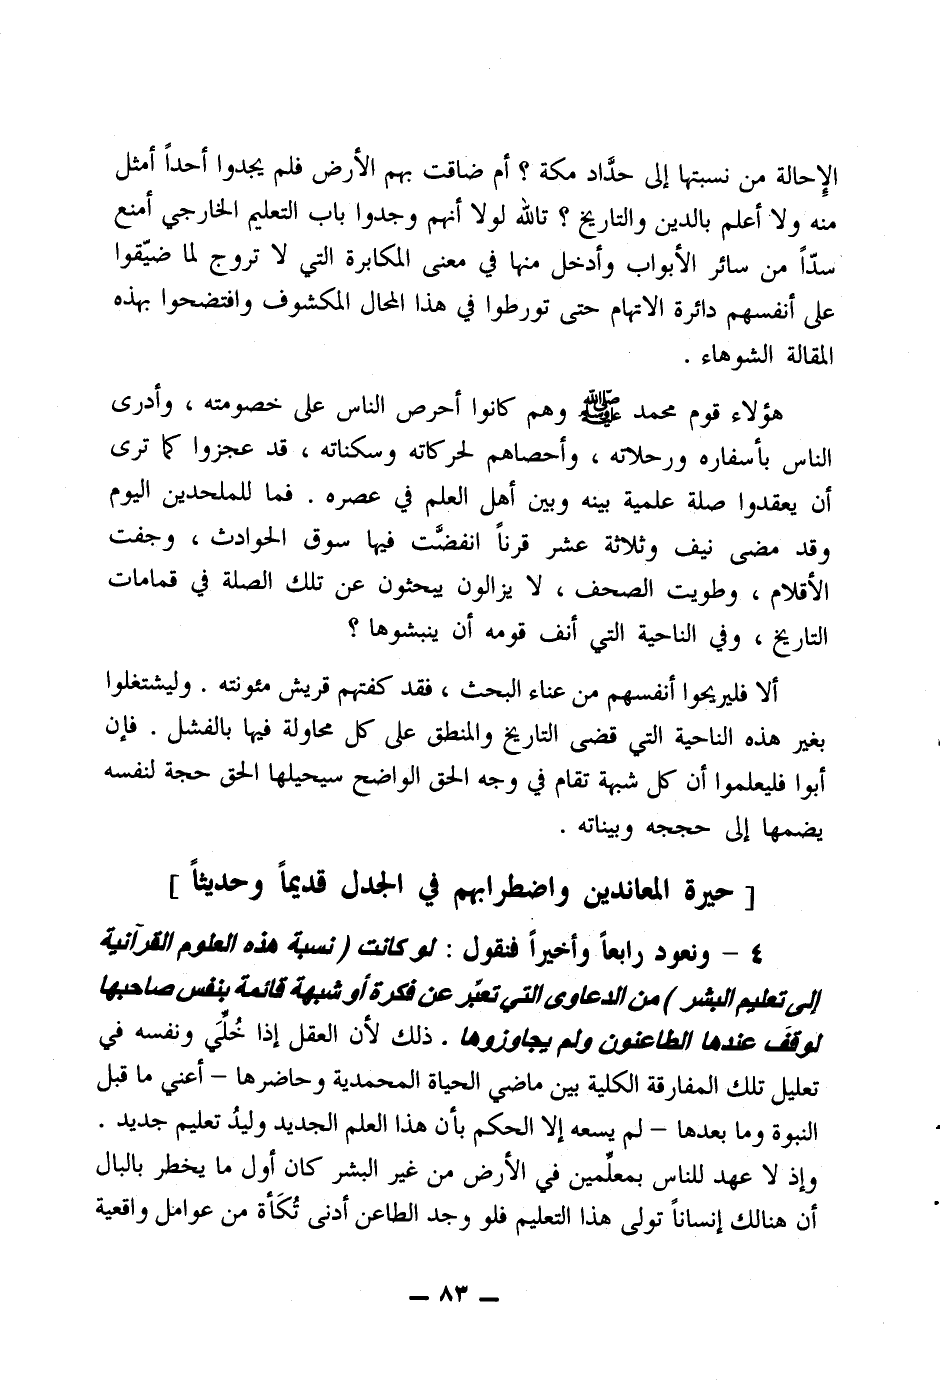 الإحالة من نسبتها إلى حدَّاد مكة ؟ أم ضاقت بهم الأرض فلم يجدوا أحداً أمثل
منه ولا أعلم بالدين والتاريخ ؟ تالله لولا أنهم وجدوا باب التعليم الخارجي أمنع
سدّاً من سائر الأبواب وأدخل منها في معنى المكابرة التي لا تروج لما ضيّقوا
على أنفسهم دائرة الاتهام حتى تورطوا في هذا المحال المكشوف وافتضحوا بهذه
المقالة الشوهاء .
هؤلاء قوم محمد ﷺ وهم كانوا أحرص الناس على خصومته ، وأدرى
الناس بأسفاره ورحلاته ، وأحصاهم لحركاته وسكناته ، قد عجزوا كما ترى
أن يعقدوا صلة علمية بينه وبين أهل العلم في عصره . فما للملحدين اليوم
وقد مضى نيف وثلاثة عشر قرناً انفضَّت فيها سوق الحوادث ، وجفت
الأقلام ، وطويت الصحف ، لا يزالون يبحثون عن تلك الصلة في قمامات
التاريخ ، وفي الناحية التي أنف قومه أن ينبشوها ؟
ألا فليريحوا أنفسهم من عناء البحث ، فقد كفتهم قريش مئونته . وليشتغلوا
بغير هذه الناحية التي قضى التاريخ والمنطق على كل محاولة فيها بالفشل . فإن
أبوا فليعلموا أن كل شبهة تقام في وجه الحق الواضح سيحيلها الحق حجة لنفسه
يضمها إلى حججه وبيناته .
[ حيرة المعاندين واضطرابهم في الجدل قديماً وحديثاً ]
٤ – ونعود رابعاً وأخيراً فنقول : لو كانت ( نسبة هذه العلوم القرآنية
إلى تعليم البشر ) من الدعاوى التي تعبّر عن فكرة أو شبهة قائمة بنفس صاحبها
لوقفَ عندها الطاعنون ولم يجاوزوها . ذلك لأن العقل إذا خُلِّيَ ونفسه في
تعليل تلك المفارقة الكلية بين ماضي الحياة المحمدية وحاضرها – أعني ما قبل
النبوة وما بعدها – لم يسعه إلا الحكم بأن هذا العلم الجديد وليدُ تعليم جديد .
وإذ لا عهد للناس بمعلِّمين في الأرض من غير البشر كان أول ما يخطر بالبال
أن هنالك إنساناً تولى هذا التعليم فلو وجد الطاعن أدنى تُكَأة من عوامل واقعية
– ٨٣ –